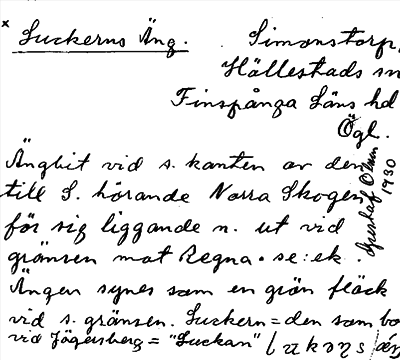 x Luckerns Äng. Simonstorp,
Hällestads sn
Finspånga Läns hd
Ögl.
Ängbit vid s. kanten av den
till S. hörande Norra Skogen
för sig liggande n. ut vid
gränsen mot Regna. se: ek.
Ängen synes som en grön fläck
vid s. gränsen. Luckern = den som bo
vid Jägersberg = "Luckan"
Gustaf
1930